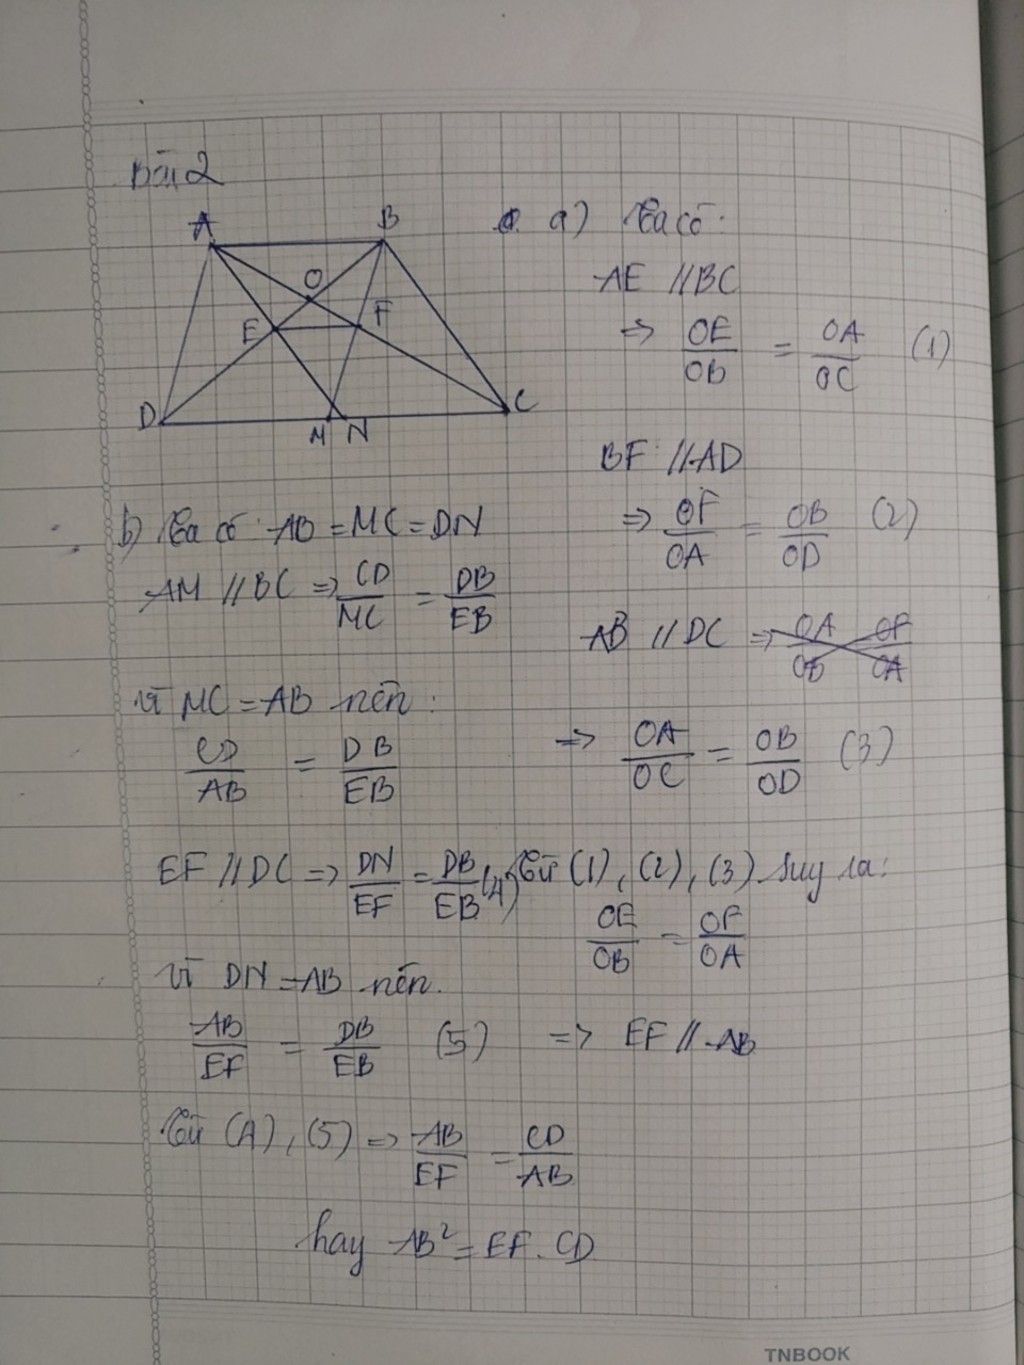 Bài 2
A B
O
E F
D M N C
a) Ta có:
AE // BC
=> OE/OB = OA/OC (1)
BF // AD
=> OF/OA = OB/OD (2)
AB // DC =>
=> OA/OC = OB/OD (3)
Từ (1), (2), (3) suy ra:
OE/OB = OF/OA
=> EF // AB
b) Ta có: AB = MC = DN
AM // BC => CD/MC = DB/EB
vì MC = AB nên:
CD/AB = DB/EB
EF // DC => DN/EF = DB/EB (4)
Vì DN = AB nên.
AB/EF = DB/EB (5)
Từ (4), (5) => AB/EF = CD/AB
hay AB² = EF . CD
TNBOOK